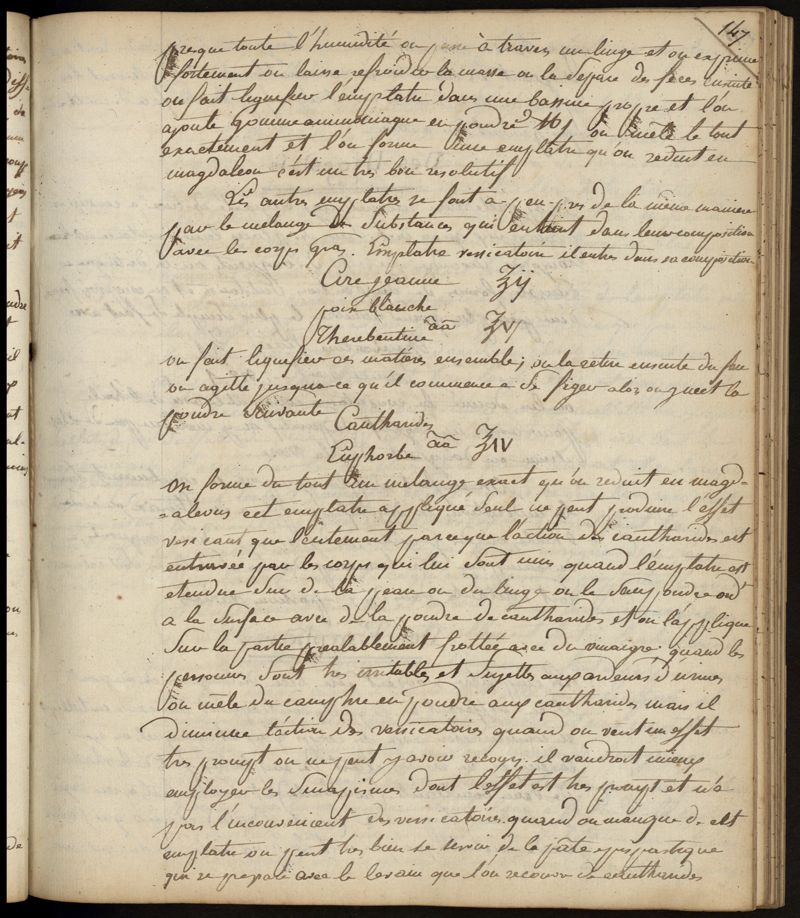 147
presque toute l'humidité on passe à travers un linge et on exprime
fortement on laisse refroidir la masse on la separe des feces ensuite
on fait liquefier l'emplatre dans une bassine propre et l'on
ajoute gomme ammoniaque en poudre on mêle le tout
exactement et l'on forme une emplatre qu'on reduit en
magdaleon c'est un tres bon resolutif
Les autres emplatres se font à-peu-pres de la même maniere
par le melange de substances qui entrent dans leur composition
avec les corps gras. Emplatre vessicatoire il entre dans sa composition
Cire jeaune ʒij
poix blanche
Therebentine āā ʒv
on fait liquefier ces matiéres ensemble; on la retire ensuite du feu
on agitte jusqua ce qu'il commence a se figer alor on y met la
poudre suivante
Cantharides
Euphorbe āā ʒıv
on forme du tout un melange exact qu'on reduit en magd=
=aleons cet emplatre appliqué seul ne peut produire l'effet
vesicant que lentement parceque l'action des cantharides est
entravée par les corps qui lui sont unis quand l'emplatre est
etendue sur de la peau ou du linge on le saupoudre
a la surface avec de la poudre de cantharides et on l'applique
sur la partie prealablement frottée avec du vinaigre quand les
personnes sont tres irritables et sujettes aux ardeurs d'urines
on mêle du camphre en poudre aux cantharides mais il
diminue l'action des vessicatoires quand on veut un effet
tres prompt on ne peut y avoir recours il vaudroit mieux
employer les sinapismes dont l'effet est tres prompt et n'a
pas l'inconvenient des vessicatoires quand on manque de cet
emplatre on peut tres bien se servir de la pâte epispastique
qui se prepare avec le levain que l'on recouvre de cantharides